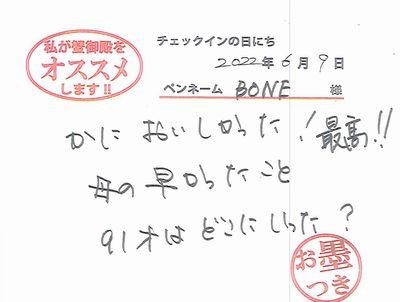 私が蟹御殿を
オススメ
します!!
チェックインの日にち
2022年6月9日
ペンネーム BONE 様
かに おいしかった!最高!!
母の早かったこと
91才はどこにいった?
お墨
つき